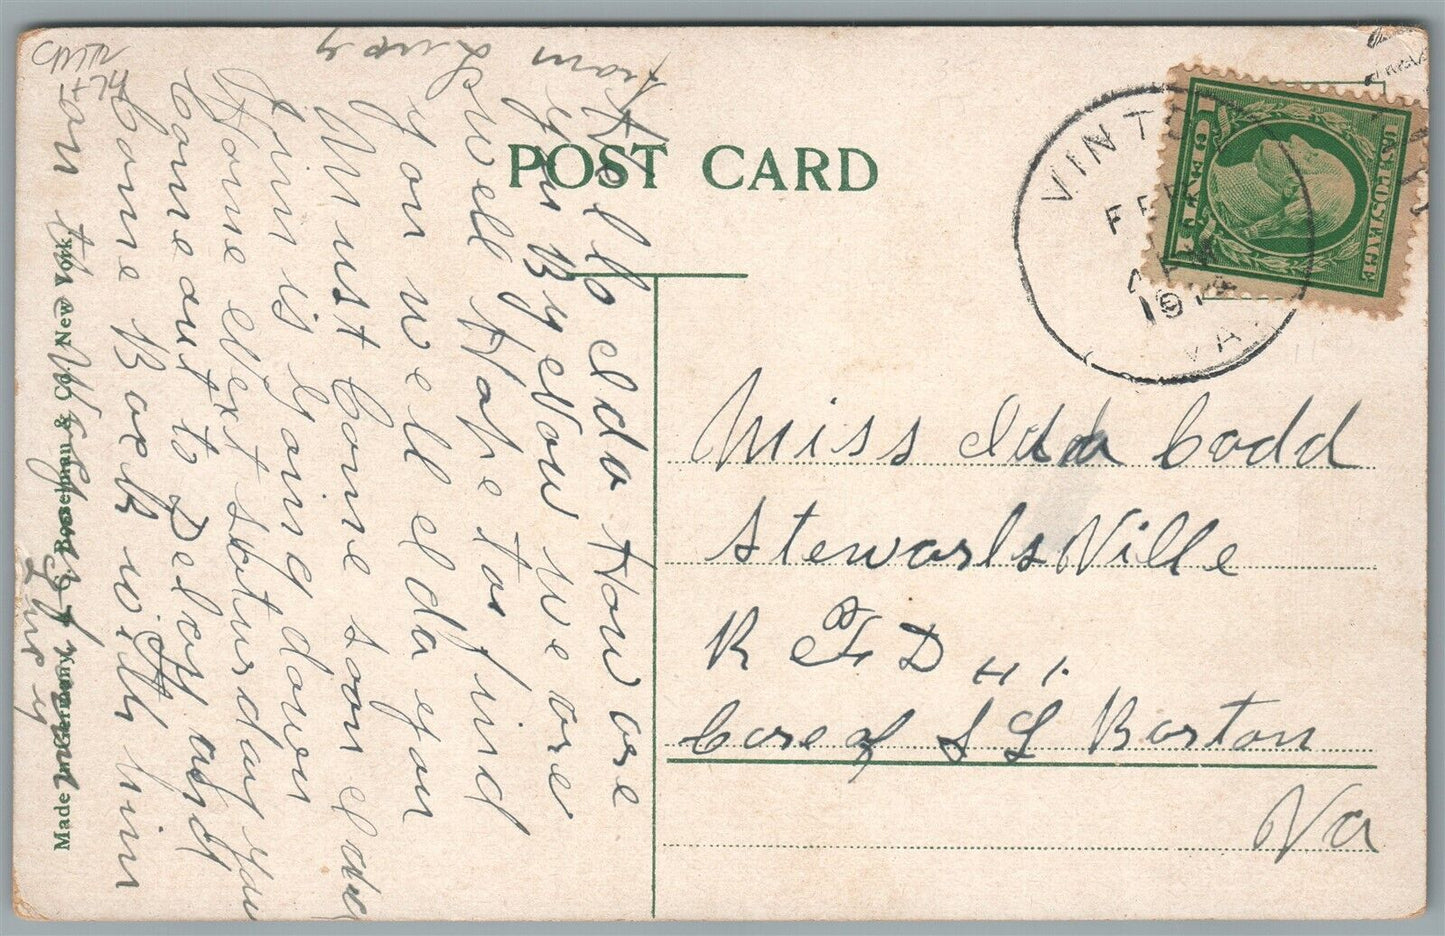 POST CARD
VINTON
FEB
4 PM
1914
VA.
U.S. POSTAGE
1 CENT 1
Miss Ida Codd
StewartsVille
R F D # 1.
Care of S L Barton
Va
Hello Ida How are
you By Now we are
well Hope to find
you well Ida you
Must Come soon Ida
Jim is going down
Home Next saturday you
Come out to Delvy and
Come Back with him
from
Lucy
Made in Germany, A. C. Bosselman & Co. New York